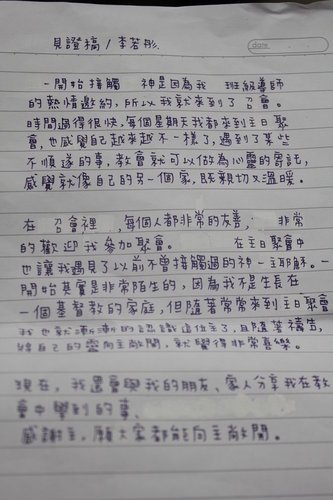 見證稿/李若彤
date
一開始接觸 神是因為我 班級導師
的熱情邀約,所以我就來到了召會。
時間過得很快,每個星期天我都來到主日聚
會,也感覺自己越來越不一樣了,遇到了某些
不順遂的事,教會就可以做為心靈的寄託,
感覺就像自己的另一個家,既親切又溫暖。
在 召會裡 ,每個人都非常的友善, 非常
的歡迎我參加聚會。 在主日聚會中
也讓我遇見了以前不曾接觸過的神—主耶穌。一
開始其實是非常陌生的,因為我不是生長在
一個基督教的家庭,但隨著常常來到主日聚會
我也就漸漸的認識這位主了,且隨著禱告,
將自己的靈向主敞開,就覺得非常喜樂。
現在,我還會與我的朋友、家人分享我在教
會中學到的事、
感謝主,願大家都能向主敞開。